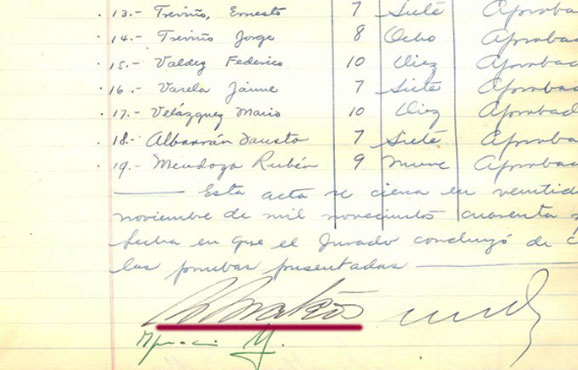 13.- Treviño, Ernesto 7 Siete Aprobad
14.- Treviño Jorge 8 Ocho Aprobad
15.- Valdez Federico 10 Diez Aprobad
16.- Varela Jaime 7 Siete Aprobad
17.- Velázquez Mario 10 Diez Aprobad
18.- Albarrán Fausto 7 Siete Aprobad
19.- Mendoza Rubén 9 Nueve Aprobad
Esta acta se cierra en veintid
noviembre de mil novecientos cuarenta
fecha en que el Jurado concluyó de c
las pruebas presentadas